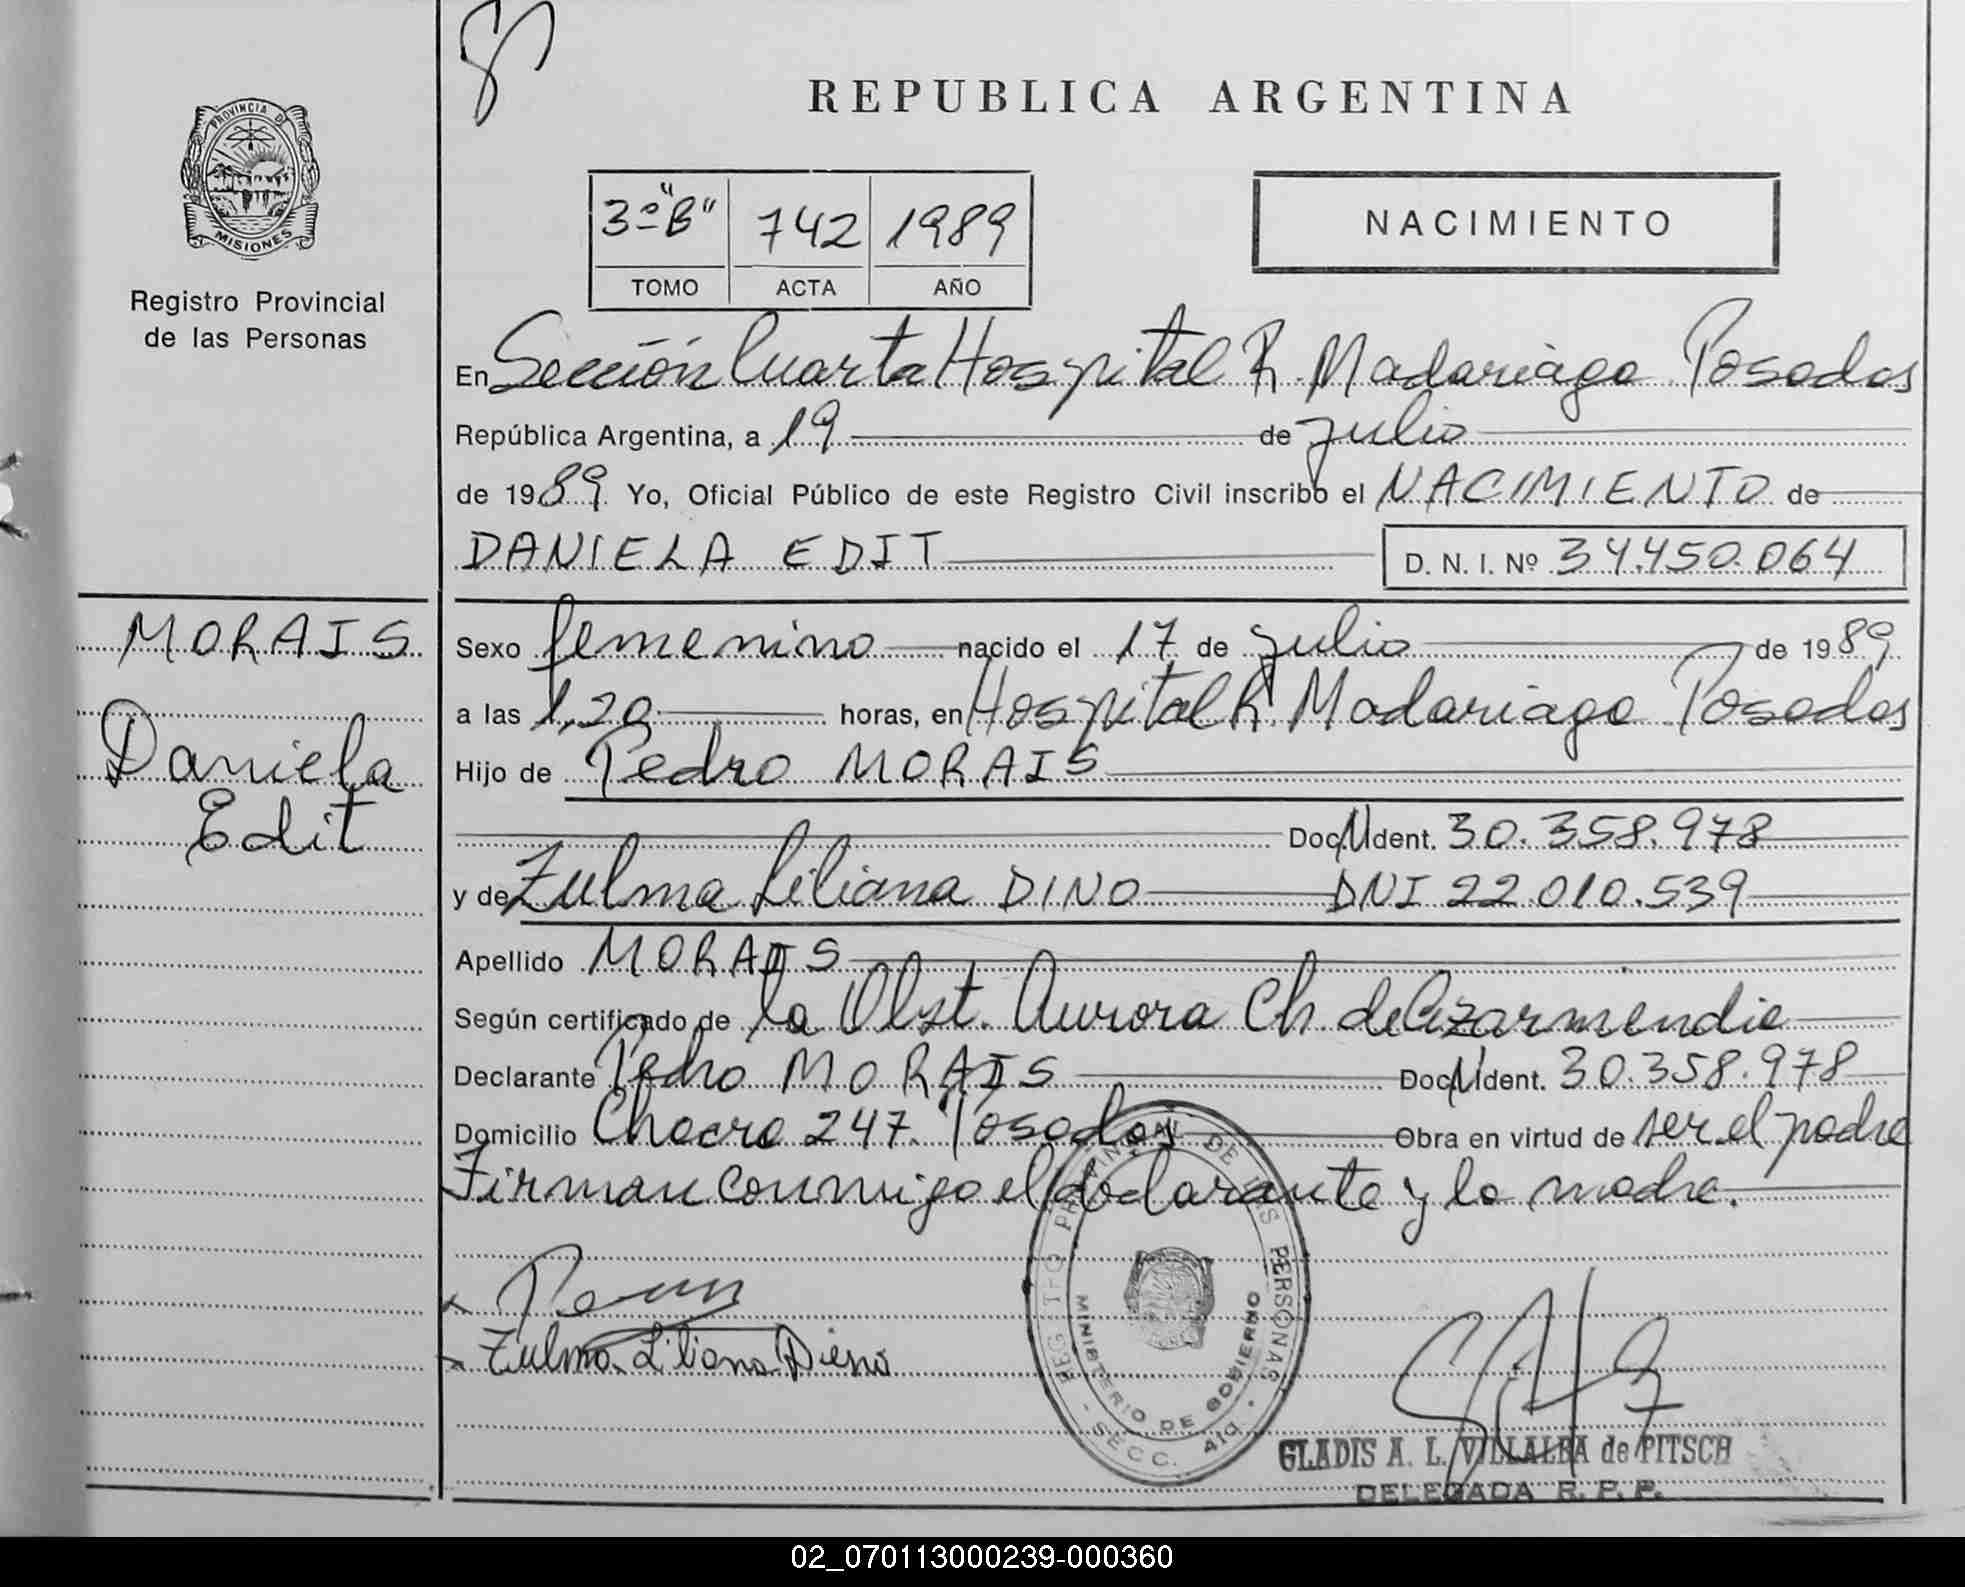 PROVINCIA DE
MISIONES
Registro Provincial
de las Personas
MORAIS
Daniela
Edit
REPUBLICA ARGENTINA
3º "B" 742 1989
TOMO ACTA AÑO
NACIMIENTO
En Sección Cuarta Hospital R. Madariaga Posadas
República Argentina, a 19 de julio
de 1989 Yo, Oficial Público de este Registro Civil inscribo el NACIMIENTO de
DANIELA EDIT D. N. I. Nº 34.450.064
Sexo femenino nacido el 17 de julio de 1989
a las 1,20 horas, en Hospital R. Madariaga Posadas
Hijo de Pedro MORAIS
Doc. Ident. 30.358.978
y de Zulma Liliana DINO DNI 22.010.539
Apellido MORAIS
Según certificado de la Obst. Aurora Ch. de Azarmendia
Declarante Pedro MORAIS Doc. Ident. 30.358.978
Domicilio Chacra 247. Posadas Obra en virtud de ser el padre
Firman conmigo el declarante y la madre.
Zulma Liliana Dieno
REGISTRO PROVINCIAL DE LAS PERSONAS
MINISTERIO DE GOBIERNO
SECC. 4ta
GLADIS A. L. VILLALBA de PITSCH
DELEGADA R. P. P.
02_070113000239-000360